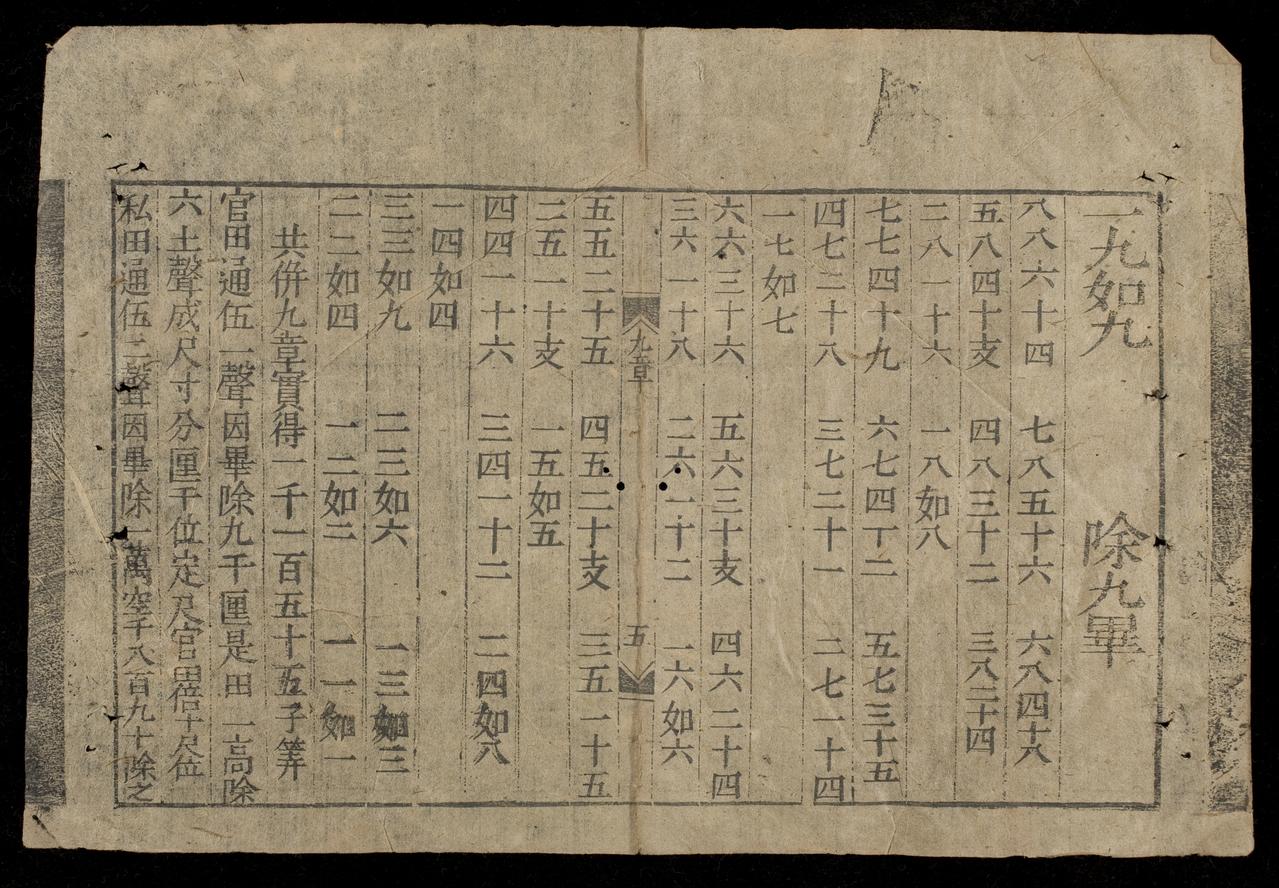 一九如九 除九畢
八八六十四 七八五十六 六八四十八
五八四十支 四八三十二 三八二十四
二八一十六 一八如八
七七四十九 六七四丁二 五七三十五
四七二十八 三七二十一 二七一十四
一七如七
六六三十六 五六三十支 四六二十四
三六一十八 二六一十二 一六如六
九章 五
五五二十五 四五二十支 三五一十五
二五一十支 一五如五
四四一十六 三四一十二 二四如八
一四如四
三三如九 二三如六 一三如三
二二如四 一二如二 一一如一
共併九章實得一千一百五十五子筭
官田通伍一聲因畢除九千厘是田一高除
六土聲成尺寸分厘千位定尺官畱倍十尺位
私田通伍二聲因畢除一萬空千八百九十除之